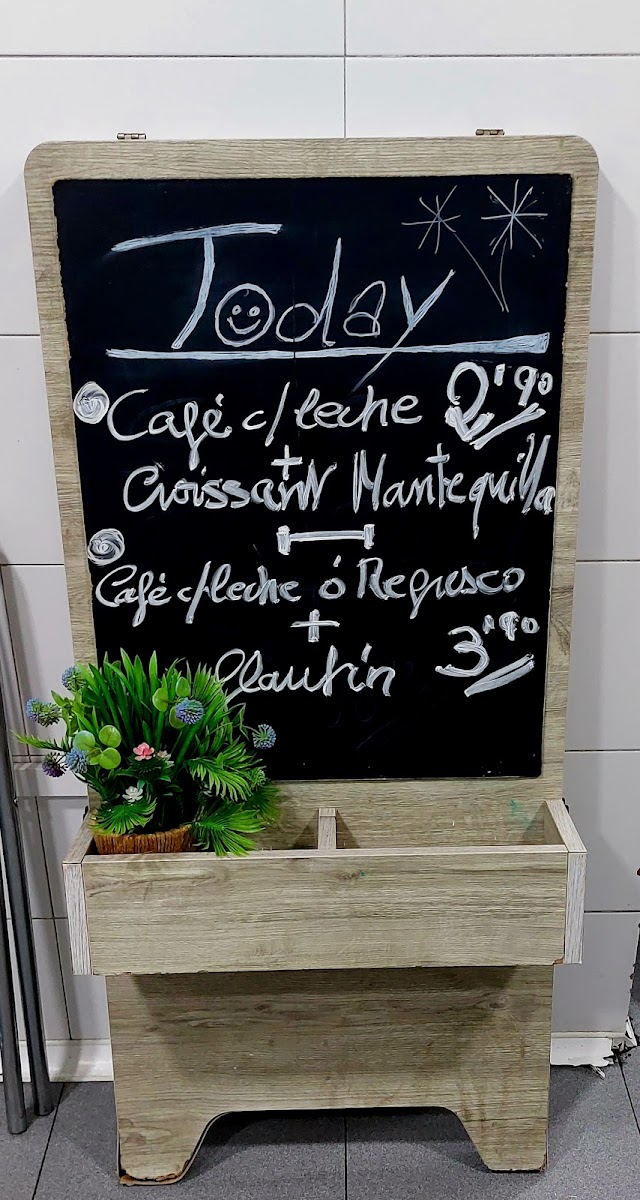 Today
Café c/leche 2'90
+
Croissant Mantequilla
Café c/leche ó Refresco
+
Flautín 3'90